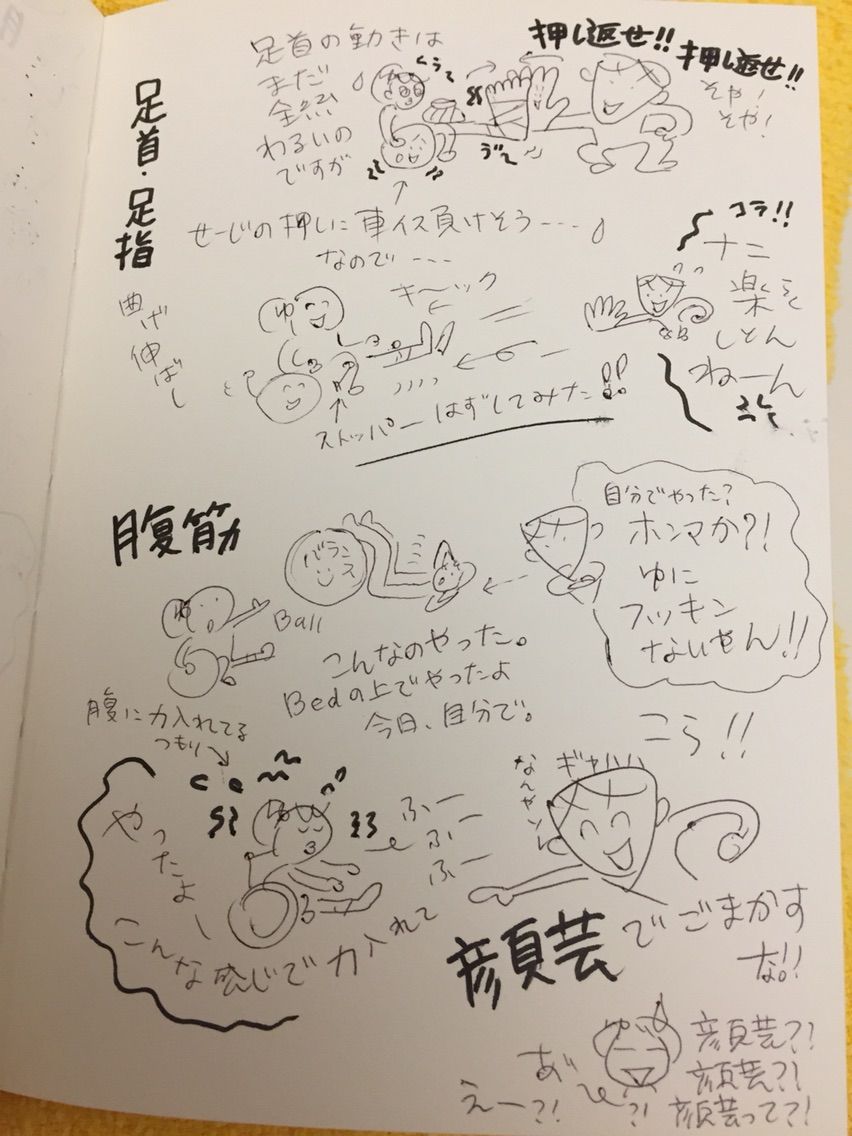 足首・足指
曲げ伸ばし
足首の動きは
まだ
全然
わるいの
ですが
うぅ〜
押し返せ!!
押し返せ!!
そや!
そや!
ゔ〜
せーじの押しに車イス負けそう----
なので----
コラ!!
ナニ
楽を
しとん
ねーん
キ〜ック
ゆ
ストッパーはずしてみた!!
腹筋
自分でやった?
ホンマか?!
ゆに
フッキン
ないやん!!
バランス
Ball
ゆ
こんなのやった。
Bedの上でやったよ
今日、自分で。
こら!!
腹に力入れてる
つもり
ゆ
ふー
ふー
ふー
やったよー
こんな感じで力入れて
ギャハハハ
なんやソレ
顔芸でごまかす
な!!
ゆ
あ゛
えー?!
?!
顔芸?!
顔芸?!
顔芸って?!